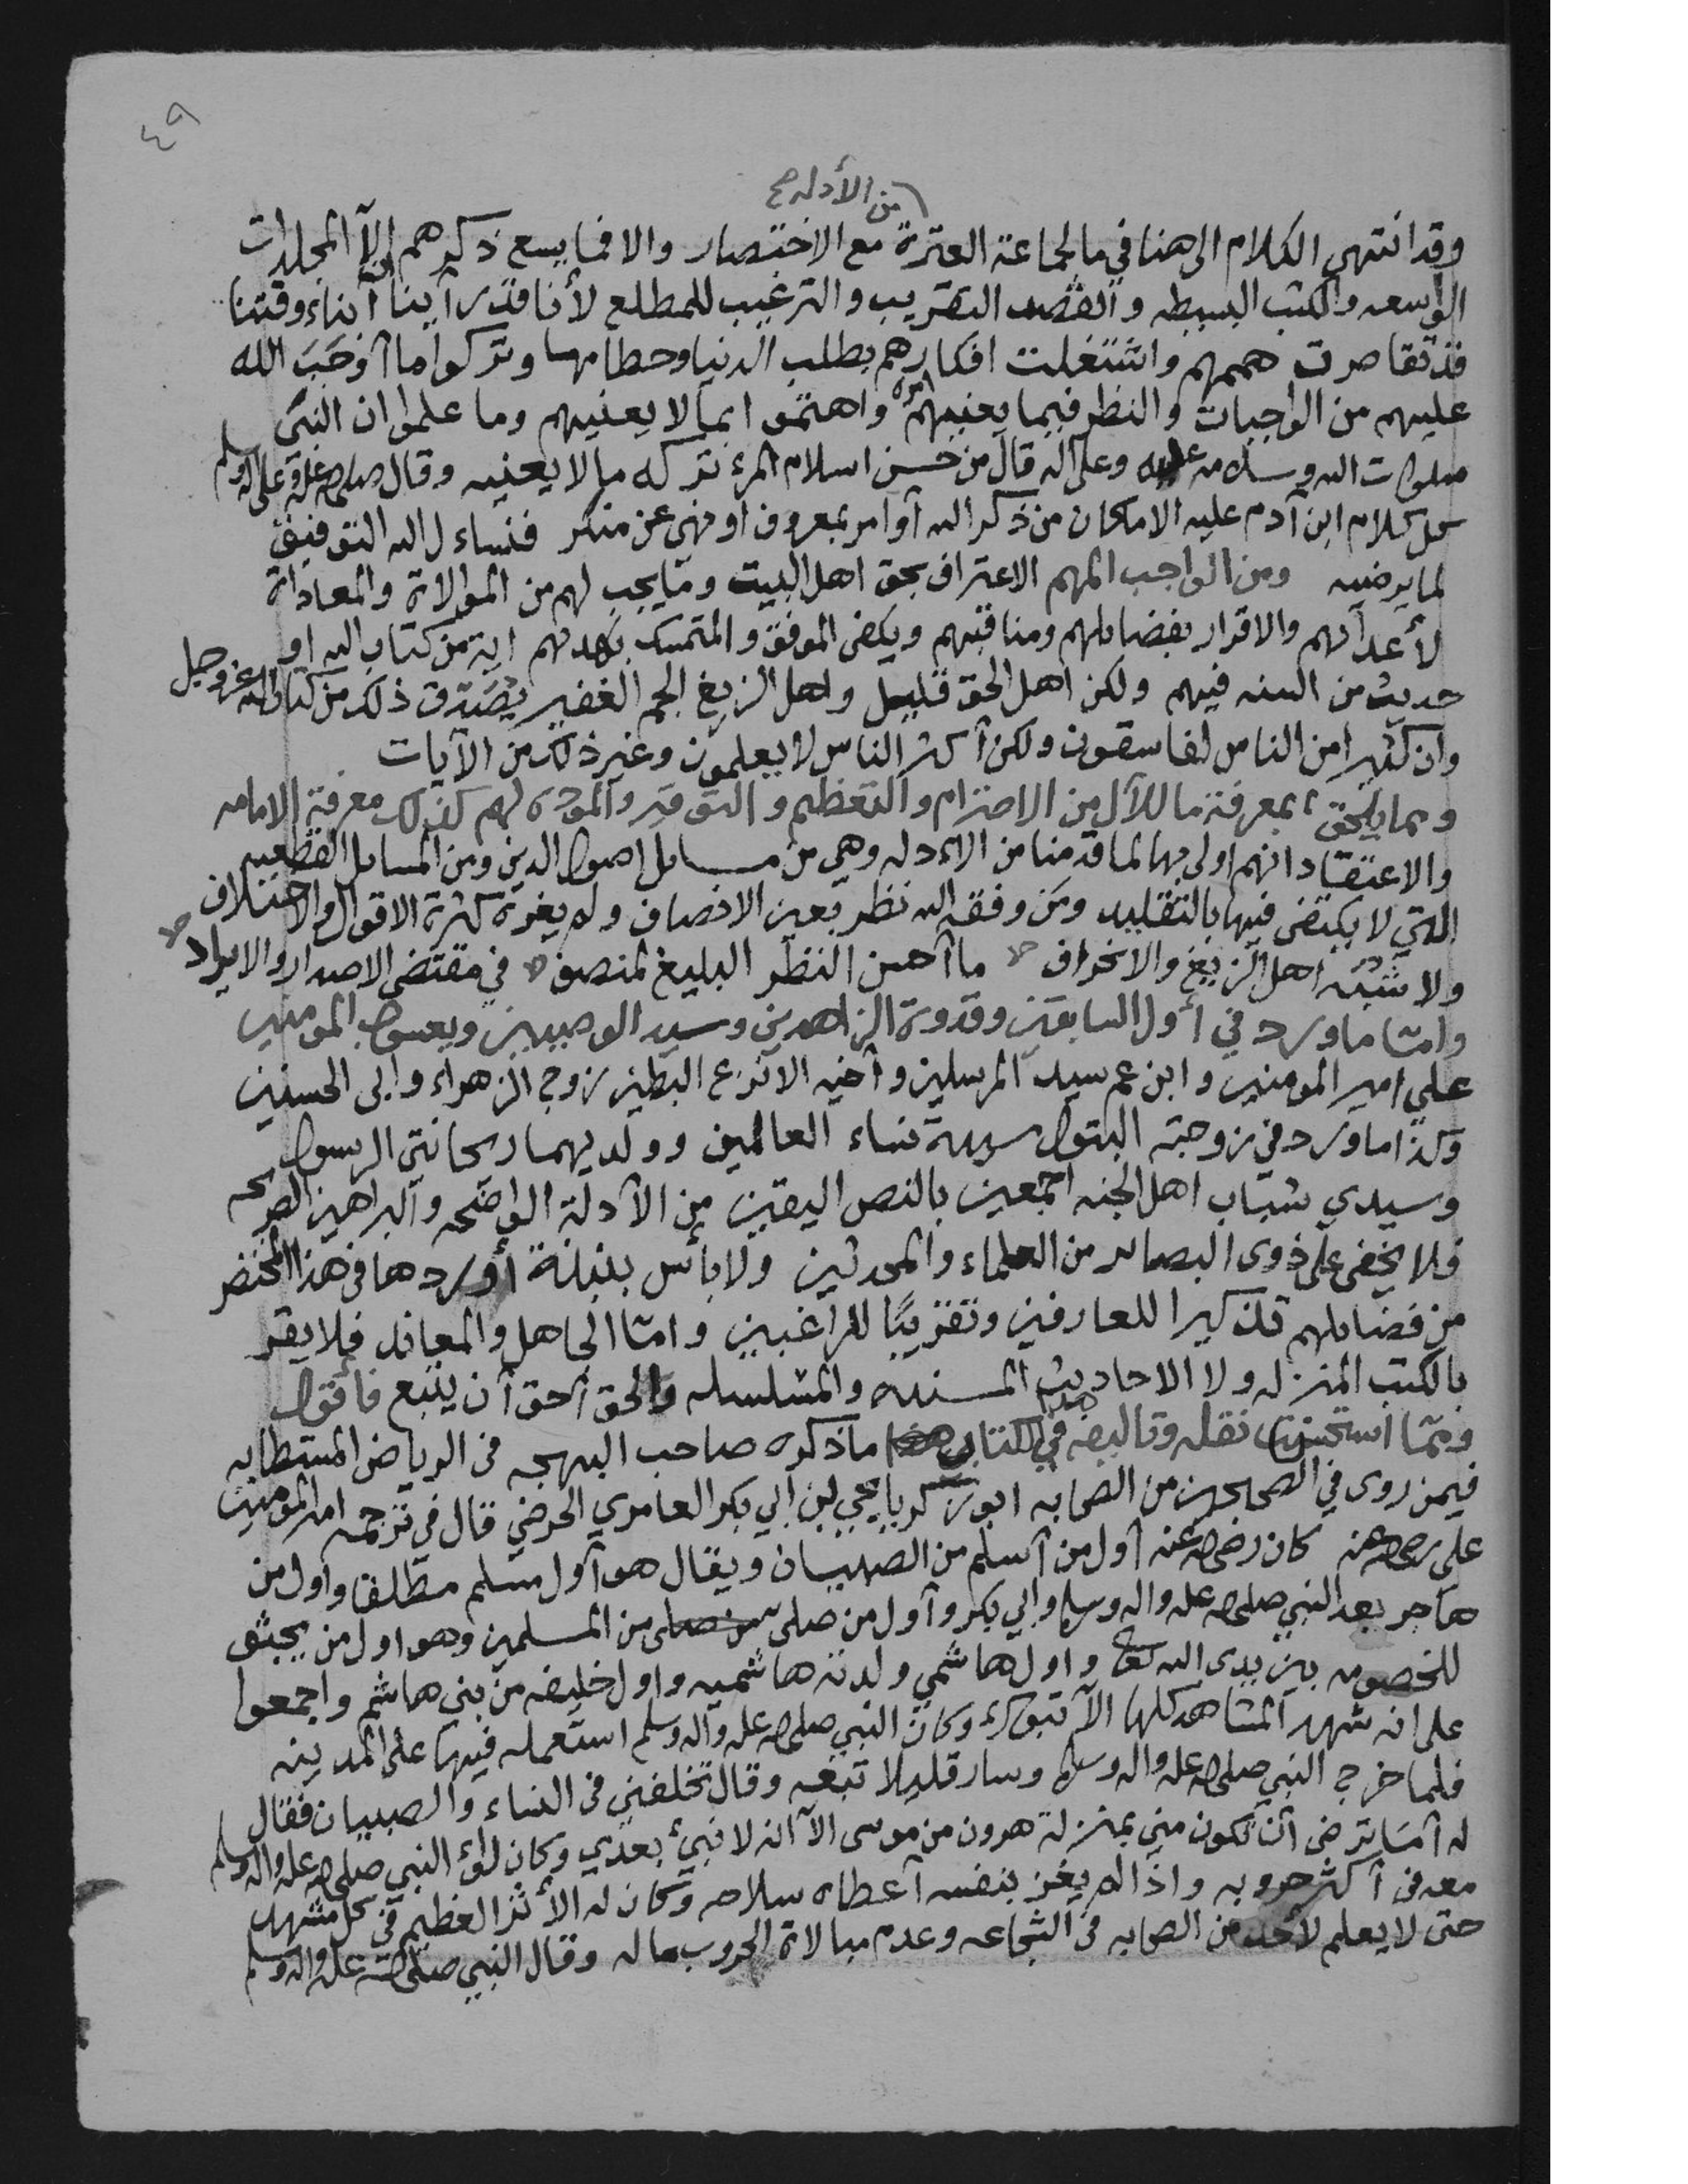 ٤٩
من الأدله صح
وقد انتهى الكلام الى هنا في ما لجماعة العترة مع الاختصار والا فما يسع ذكرهم إلآ المجلدات
الواسعه والكتب البسيطه والقصد التقريب والترغيب للمطلع لأنا قد رآينا أن آبناء وقتنا
قد تقاصرت هممهم واشتغلت افكارهم بطلب الدنيا وحطامها وتركوا ما آوجَبَ الله
عليهم من الواجبات والنظر فيما يعنيهم امره واهتموا بما لا يعنيهم وما علموا ان النبي
صلوات الله وسلامه عليه وعلى آله قال من حسن اسلام المرء تركه ما لا يعنيه وقال صلى الله عليه وعلى آله وسلم
كل كلام ابن آدم عليه الا ماكان من ذكر الله آو امر بمعروف او نهي عن منكر فنساءل الله التوفيق
لما يرضيه ومن الواجب المهم الاعتراف بحق اهل البيت وما يجب لهم من الموالاة والمعاداة
لأعدآئهم والاقرار بفضايلهم ومناقبهم ويكفي الموفق والمتمسك بهديهم آية من كتاب الله او
حديث من السنه فيهم ولكن اهل الحق قليل واهل الزيغ الجم الغفير يصَدق ذلك من كتاب الله عز وجل
وان كثيرا من الناس لفاسقون ولكن آكثر الناس لا يعلمون وغير ذلك من الآيات
ومما يلحق بمعرفة ما للآل من الاحترام والتعظيم والتوقير والموده لهم كذلك معرفة الامامه
والاعتقاد انهم اولى بها لما قدمنا من الادله وهي من مسايل اصول الدين ومن المسايل القطعيه
التي لا يكتفى فيها بالتقليد ومَن وفقه الله نظر بعين الانصاف ولم يغره كثرة الاقوال والاختلاف
ولا شبه اهل الزيغ والانحراف ما آحسن النظر البليغ لمنصف في مقتضى الاصدار والايراد
وامّا ما ورد في أول السابقين وقدوة الزاهدين وسيد الوصيين ويعسوب المومنين
علي امير المومنين وابن عم سيد المرسلين وأخيه الانزع البطين زوج الزهراء وابي الحسنين
وكذا ما ورد في زوجته البتول سيدة نساء العالمين وولديهما ريحانتي الرسول
وسيدي شباب اهل الجنه اجمعين بالنص اليقين من الآدلة الواضحه والبراهين الصحيحه
فلا يخفى على ذوى البصاير من العلماء والمحدثين ولا بأس بنبذة أوردها في هذا المختصر
من فضايلهم تذكيرا للعارفين وتقريبًا للراغبين وامّا الجاهل والمعاند فلا يقر
بالكتب المنزله ولا الاحاديث المسنده والمسلسله والحق آحق آن يتبع فأقول
وممّا استحسنت نقله وتاليفه في هذا الكتاب ما ذكره صاحب البهجه في الرياض المستطابه
فيمن روى في الصحيحين من الصحابه ابو زكريا يحيى بن ابي بكر العامري الحرضي قال في ترجمة امير المومنين
علي رضي الله عنه كان رضي الله عنه آول من آسلم من الصبيان ويقال هو آول مسلم مطلقا واول من
هاجر بعد النبي صلى الله عليه واله وسلم وابي بكر وآول من صلى من المسلمين وهو اول من يجثو
للخصومه بين يدى الله تعالى واول هاشمي ولدته هاشميه واول خليفه من بني هاشم واجمعوا
على انه شهد المشاهد كلها الآ تبوك وكان النبي صلى الله عليه وآله وسلم استعمله فيها على المدينه
فلما خرج النبي صلى الله عليه واله وسلم وسار قليلا تبعه وقال تخلفني في النساء والصبيان فقال
له آمَا ترضى آن تكون مني بمنزلة هرون من موسى الآ آنه لا نبيء بعدي وكان لواء النبي صلى الله عليه واله وسلم
معه في آكثر حروبه واذا لم يغز بنفسه آعطاه سلاحه وكان له الأثر العظيم في كل مشهد
حتى لا يعلم لأحد من الصحابه في الشجاعه وعدم مبالاة الحروب ما له وقال النبي صلى الله عليه واله وسلم